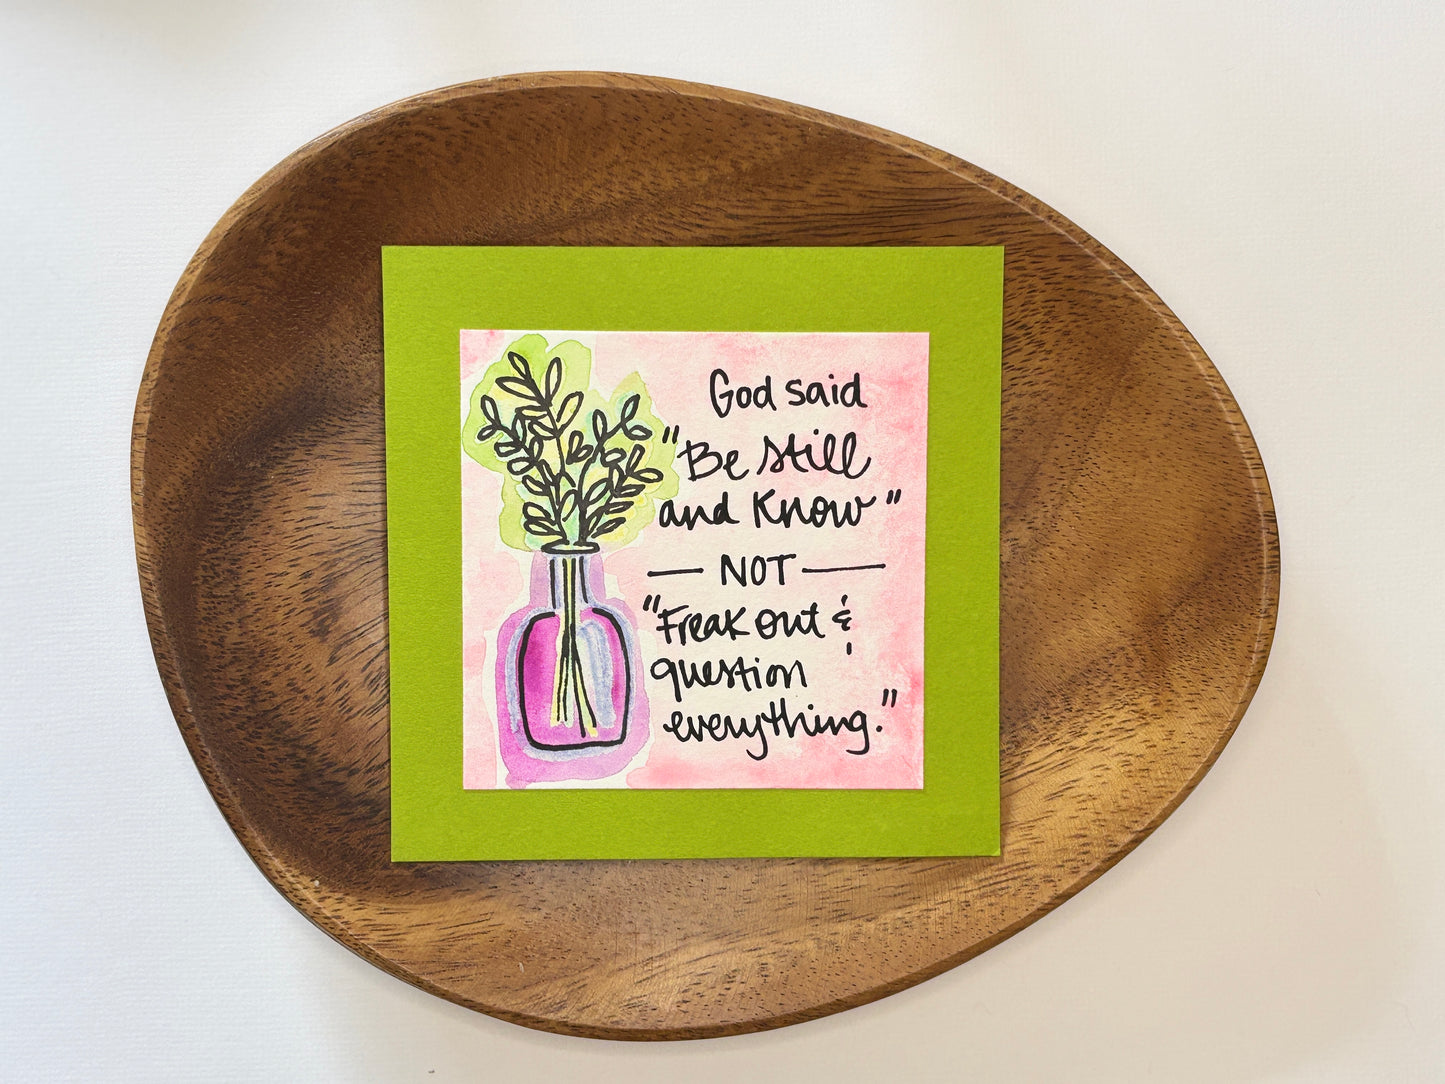 God said
"Be still
and Know"
— NOT —
"Freak out &
question
everything."